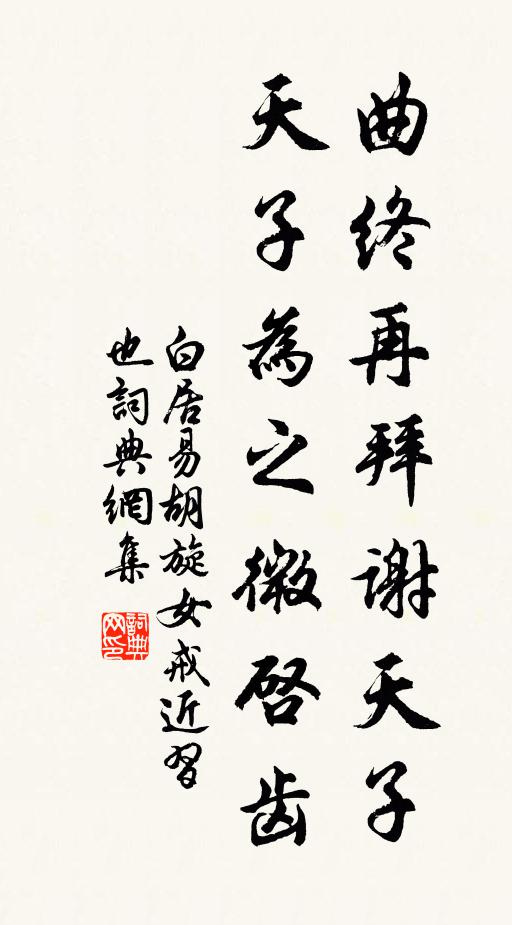 曲终再拜谢天子
天子為之微啓齿
白居易胡旋女戒近習
也詞典網集
詞典
网印